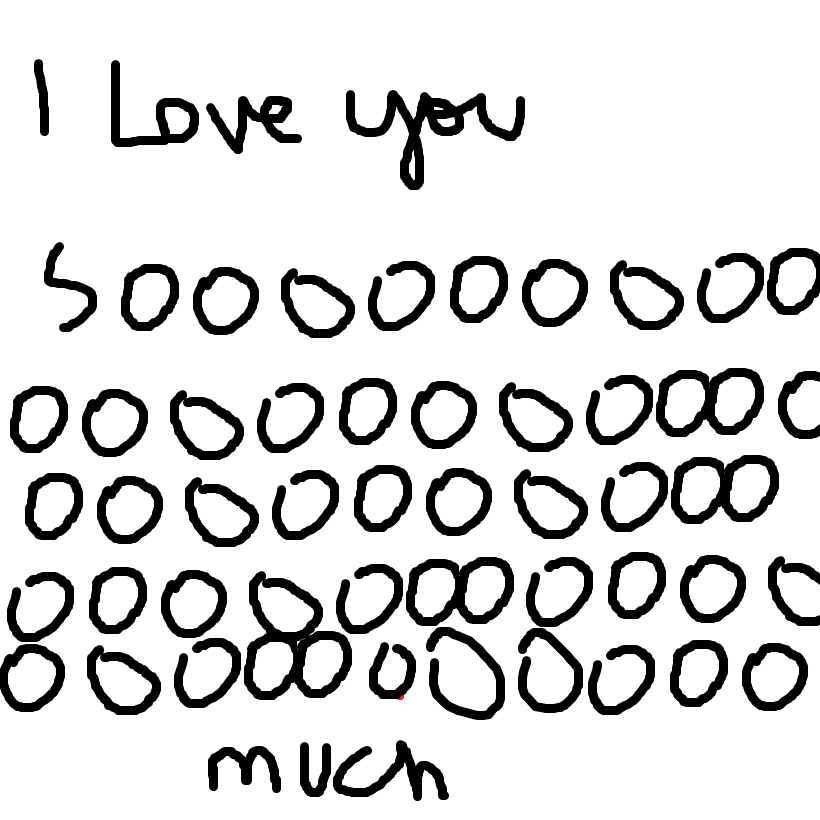 I Love you
Sooooooooo
ooooooooooo
oooooooooo
ooooooooooo
ooooooooooo
much